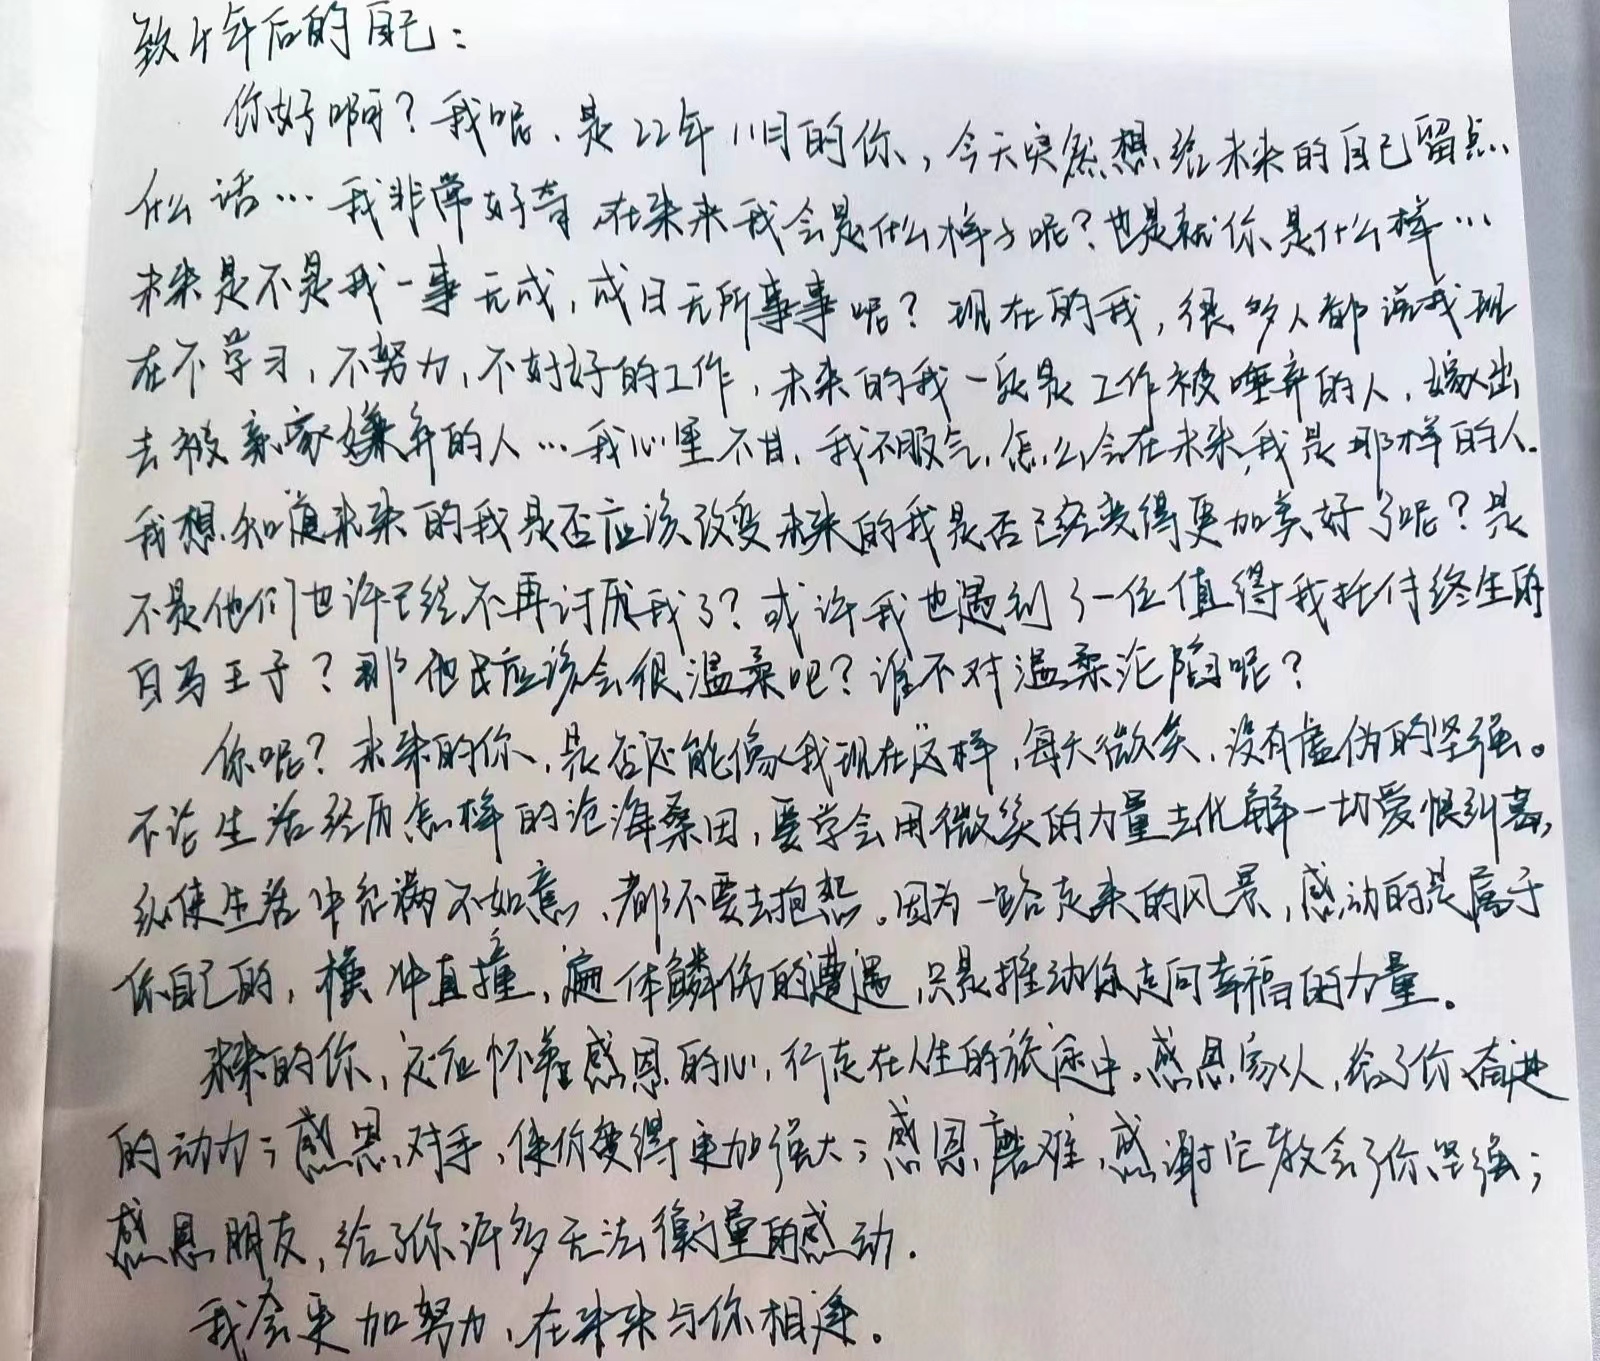 致十年后的自己：
你好啊？我呢、是22年11月的你，今天突然想给未来的自己留点
什么话…我非常好奇，在未来我会是什么样子呢？也是就你是什么样…
未来是不是我一事无成，成日无所事事呢？现在的我，很多人都说我现
在不学习，不努力，不好好的工作，未来的我一定是工作被唾弃的人，嫁出
去被亲家嫌弃的人…我心里不甘，我不服气，怎么会在未来，我是那样的人.
我想知道未来的我是否应该改变未来的我是否已经变得更加美好了呢？是
不是他们也许已经不再讨厌我了？或许我也遇到了一位值得我托付终生的
白马王子？那他应该会很温柔吧？谁不对温柔沦陷呢？
你呢？未来的你，是否还能像我现在这样，每天微笑，没有虚伪的坚强。
不论生活经历怎样的沧海桑田，要学会用微笑的力量去化解一切爱恨纠葛，
纵使生活中充满不如意，都不要去抱怨。因为一路走来的风景，感动的是属于
你自己的，横冲直撞，遍体鳞伤的遭遇，只是推动你走向幸福的力量。
未来的你，还应怀着感恩的心，行走在人生的旅途中。感恩家人，给了你奋进
的动力；感恩对手，使你变得更加强大；感恩磨难，感谢它教会了你坚强；
感恩朋友，给了你许多无法衡量的感动.
我会更加努力，在未来与你相逢。